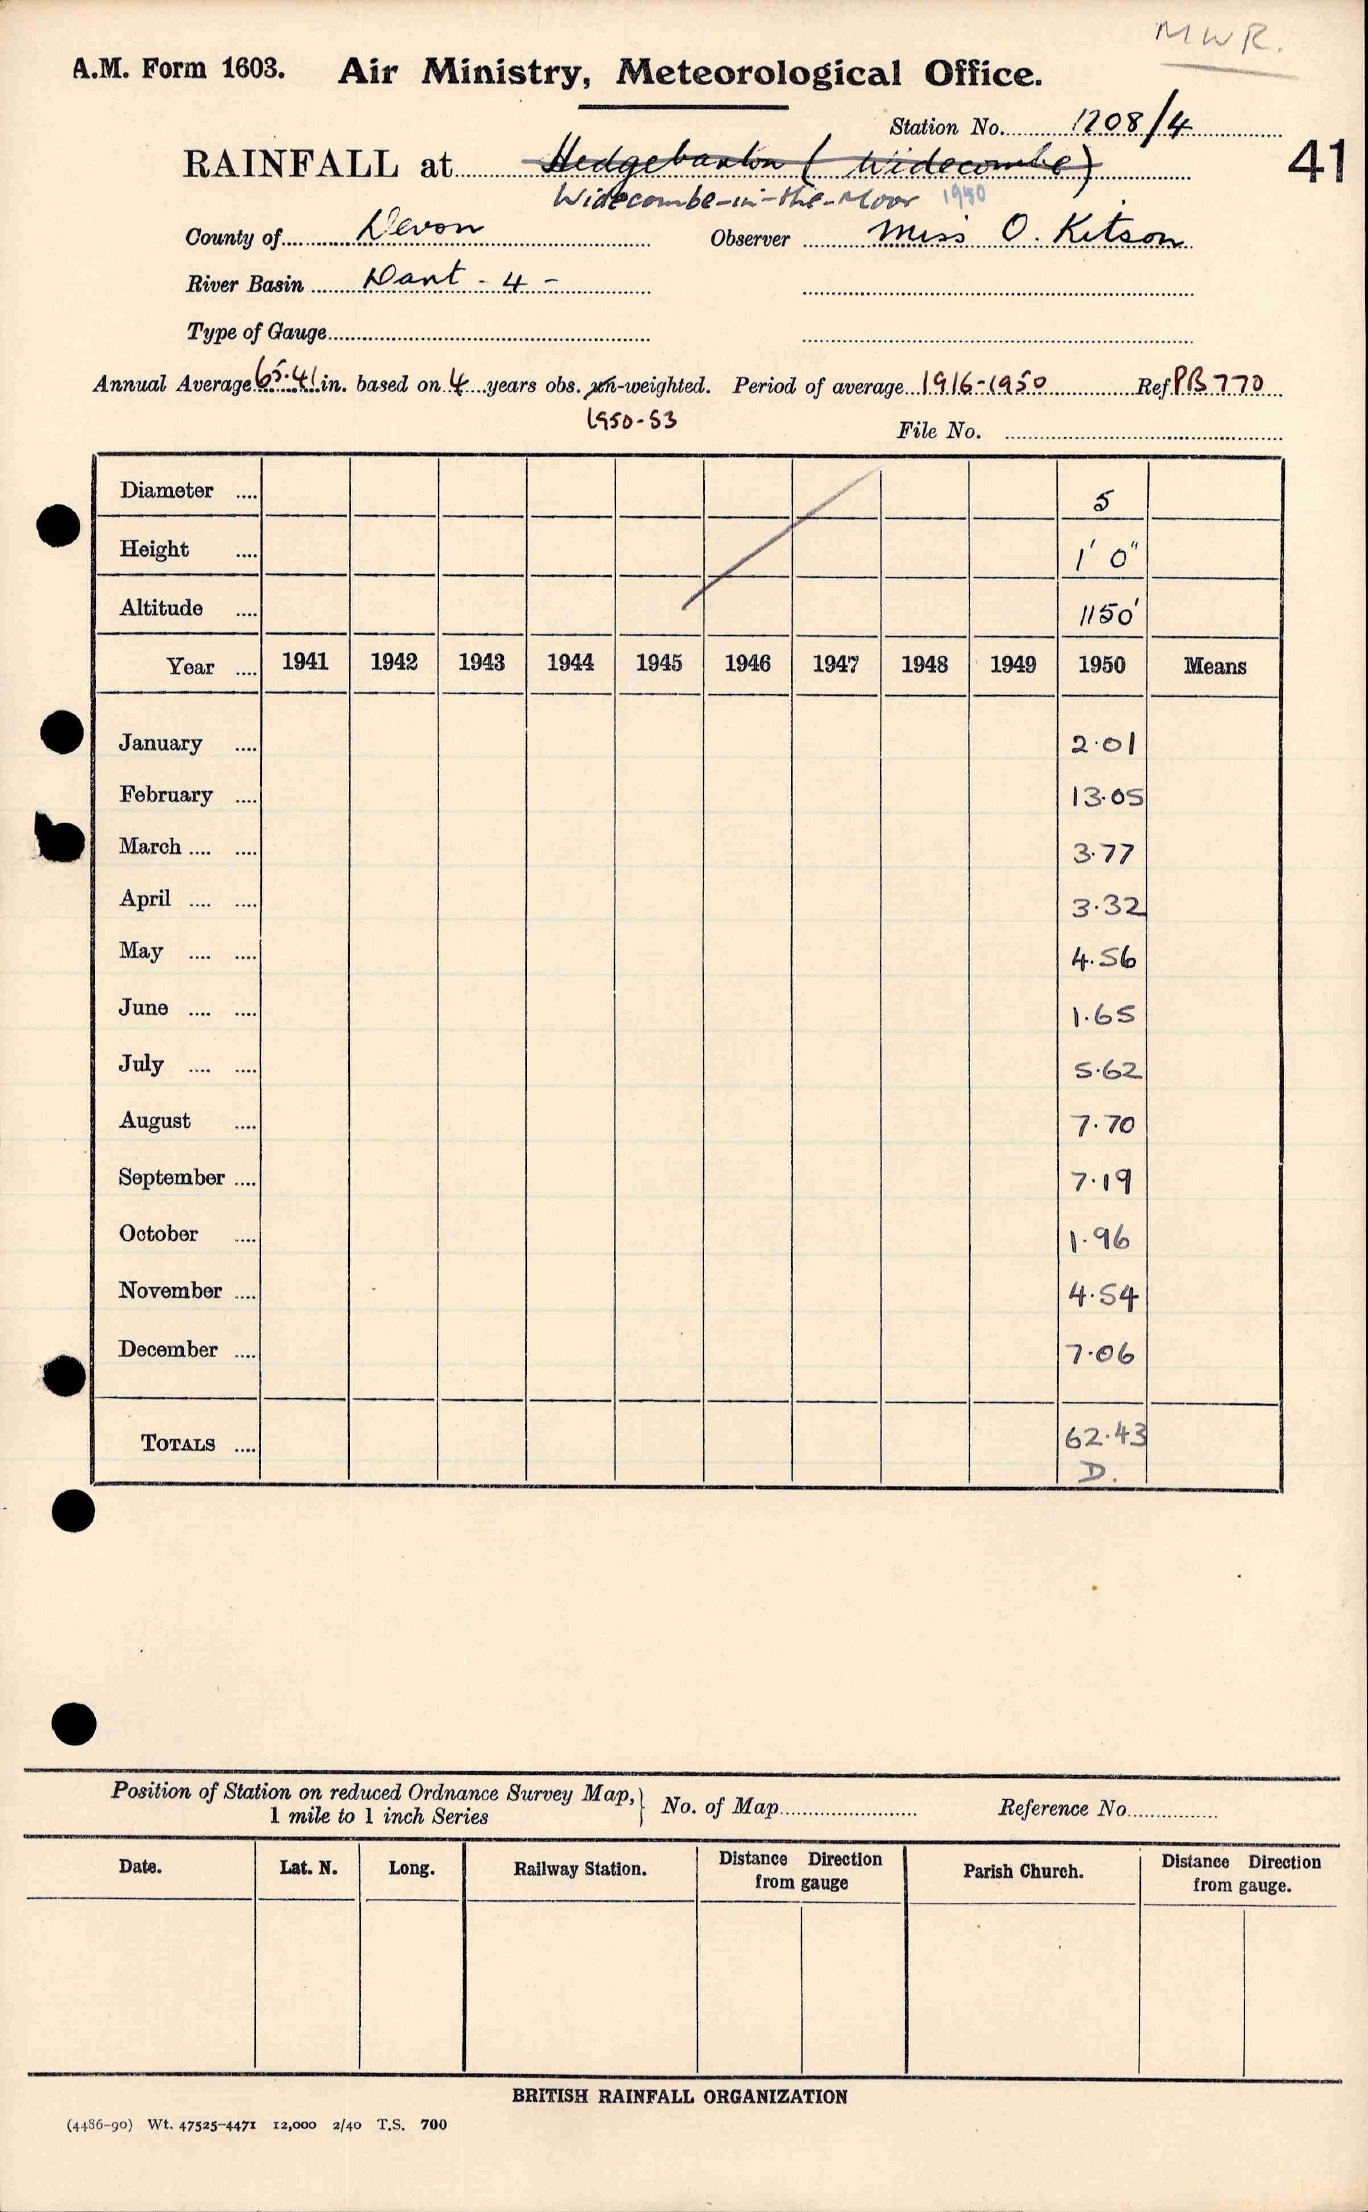 MWR.
A.M. Form 1603. Air Ministry, Meteorological Office.
Station No. 1208/4
41
RAINFALL at Hedgebarton (Widecombe)
Widecombe-in-the-Moor 1950
County of Devon Observer Miss O. Kitson
River Basin Dart - 4 -
Type of Gauge
Annual Average 65.41 in. based on 4 years obs. un-weighted. Period of average 1916-1950 Ref. PB770
1950-53
File No.
Diameter .... 5
Height .... 1' 0"
Altitude .... 1150'
Year .... 1941 1942 1943 1944 1945 1946 1947 1948 1949 1950 Means
January .... 2.01
February .... 13.05
March .... .... 3.77
April .... .... 3.32
May .... .... 4.56
June .... .... 1.65
July .... .... 5.62
August .... 7.70
September .... 7.19
October .... 1.96
November .... 4.54
December .... 7.06
TOTALS .... 62.43
D.
Position of Station on reduced Ordnance Survey Map, } No. of Map Reference No.
1 mile to 1 inch Series
Date. Lat. N. Long. Railway Station. Distance from gauge Direction Parish Church. Distance Direction from gauge.
BRITISH RAINFALL ORGANIZATION
(4486-90) Wt. 47525-4471 12,000 2/40 T.S. 700